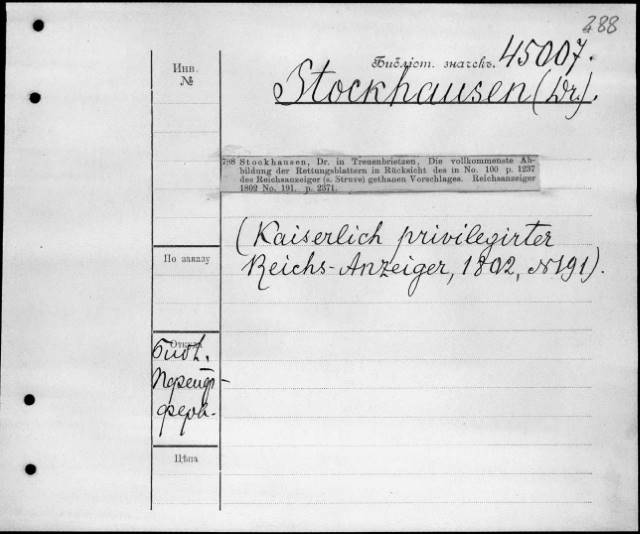 288
Библіот. значекъ. 45007.
Инв.
№
Stockhausen (Dr.).
798 Stockhausen, Dr. in Treuenbrietzen, Die vollkommenste Ab-
bildung der Rettungsblattern in Rücksicht des in No. 100 p. 1237
des Reichsanzeiger (s. Struve) gethanen Vorschlages. Reichsanzeiger
1802 No. 191. p. 2371.
(Kaiserlich privilegirter
Reichs-Anzeiger, 1802, N 191).
По заказу
Откуда
Библ.
Цѣна